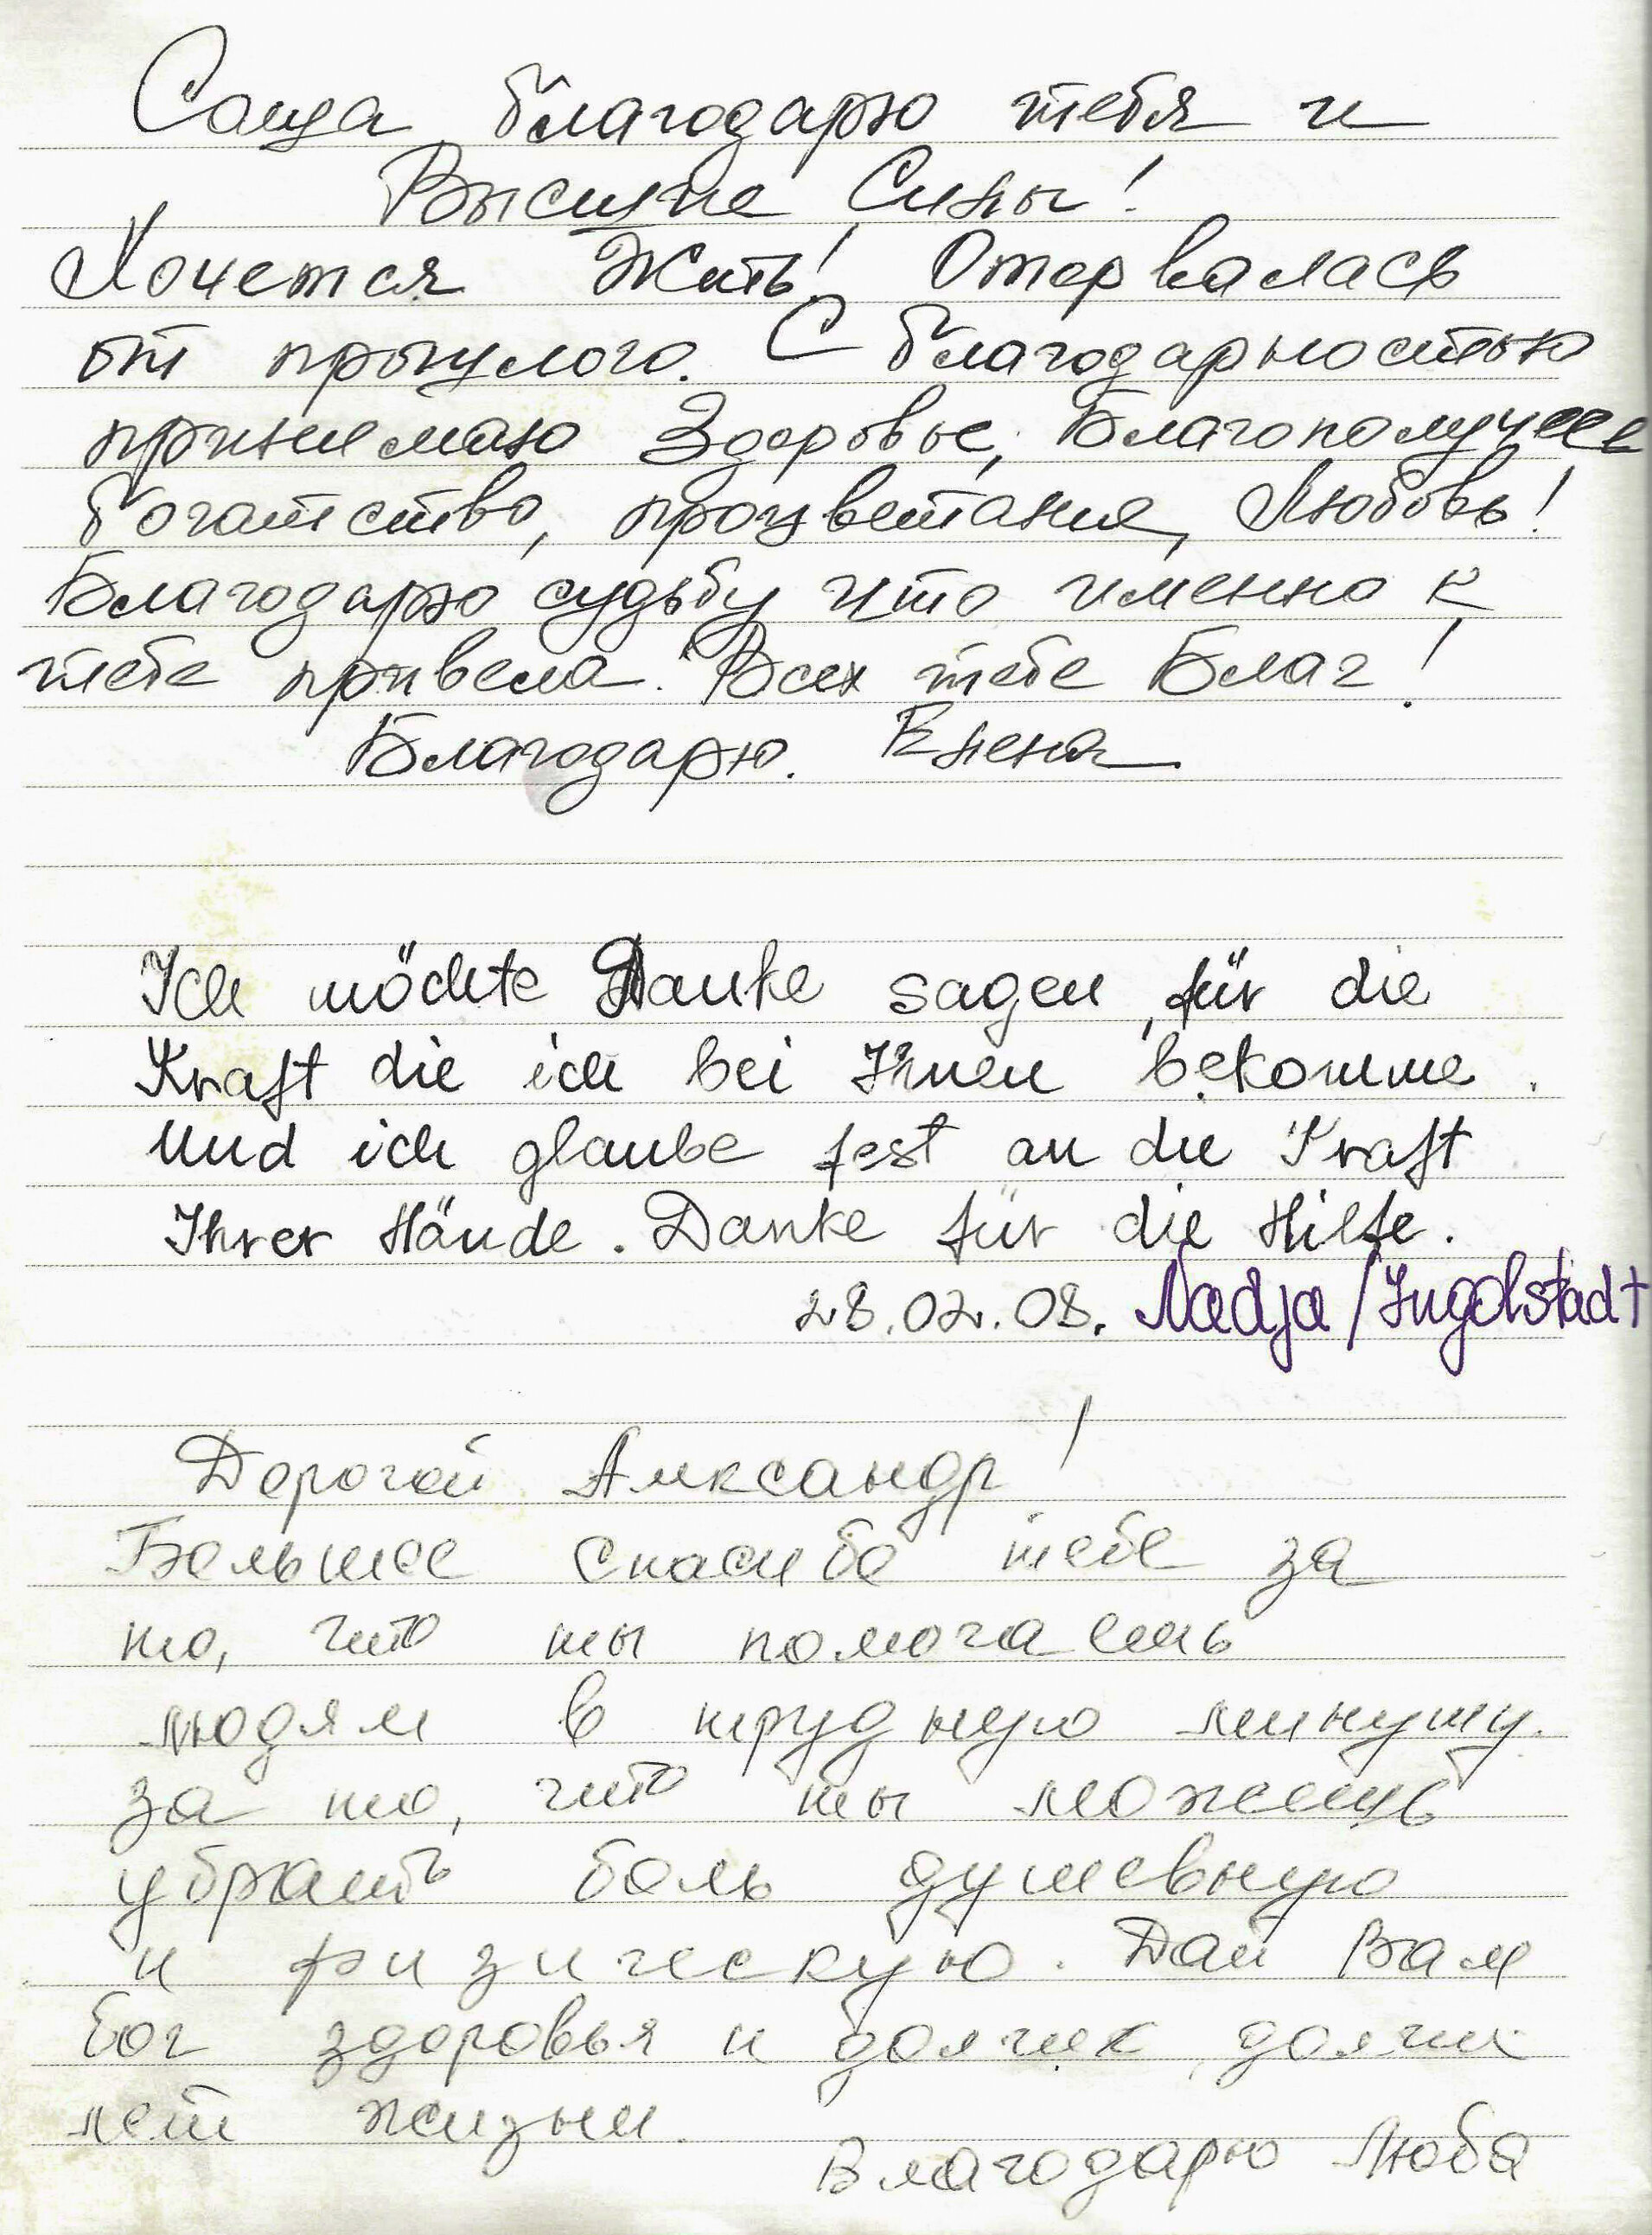 Саша благодарю тебя и
Высшие Силы!
Хочется Жить! Оторвалась
от прошлого. С благодарностью
принимаю Здоровье, Благополучие
богатство, процветания, Любовь!
Благодарю судьбу что именно к
тебе привела. Всех тебе Благ!
Благодарю. Елена
Ich möchte Danke sagen, für die
Kraft die ich bei Ihnen bekomme.
Und ich glaube fest an die Kraft
Ihrer Hände. Danke für die Hilfe.
28.02.08. Nadja / Ingolstadt
Дорогой Александр!
Большое спасибо тебе за
то, что ты помогаешь
людям в трудную минуту.
за то, что ты можешь
убрать боль душевную
и физическую. Дай Вам
бог здоровья и долгих, долгих
лет жизни.
Благодарю Люба